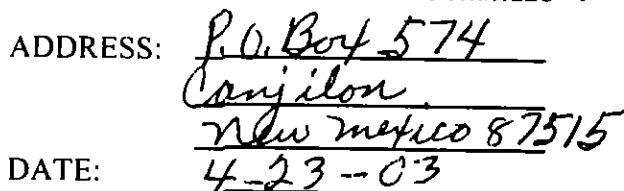 ADDRESS: P.O. Box 574
Canjilon
New Mexico 87515
DATE: 4-23--03